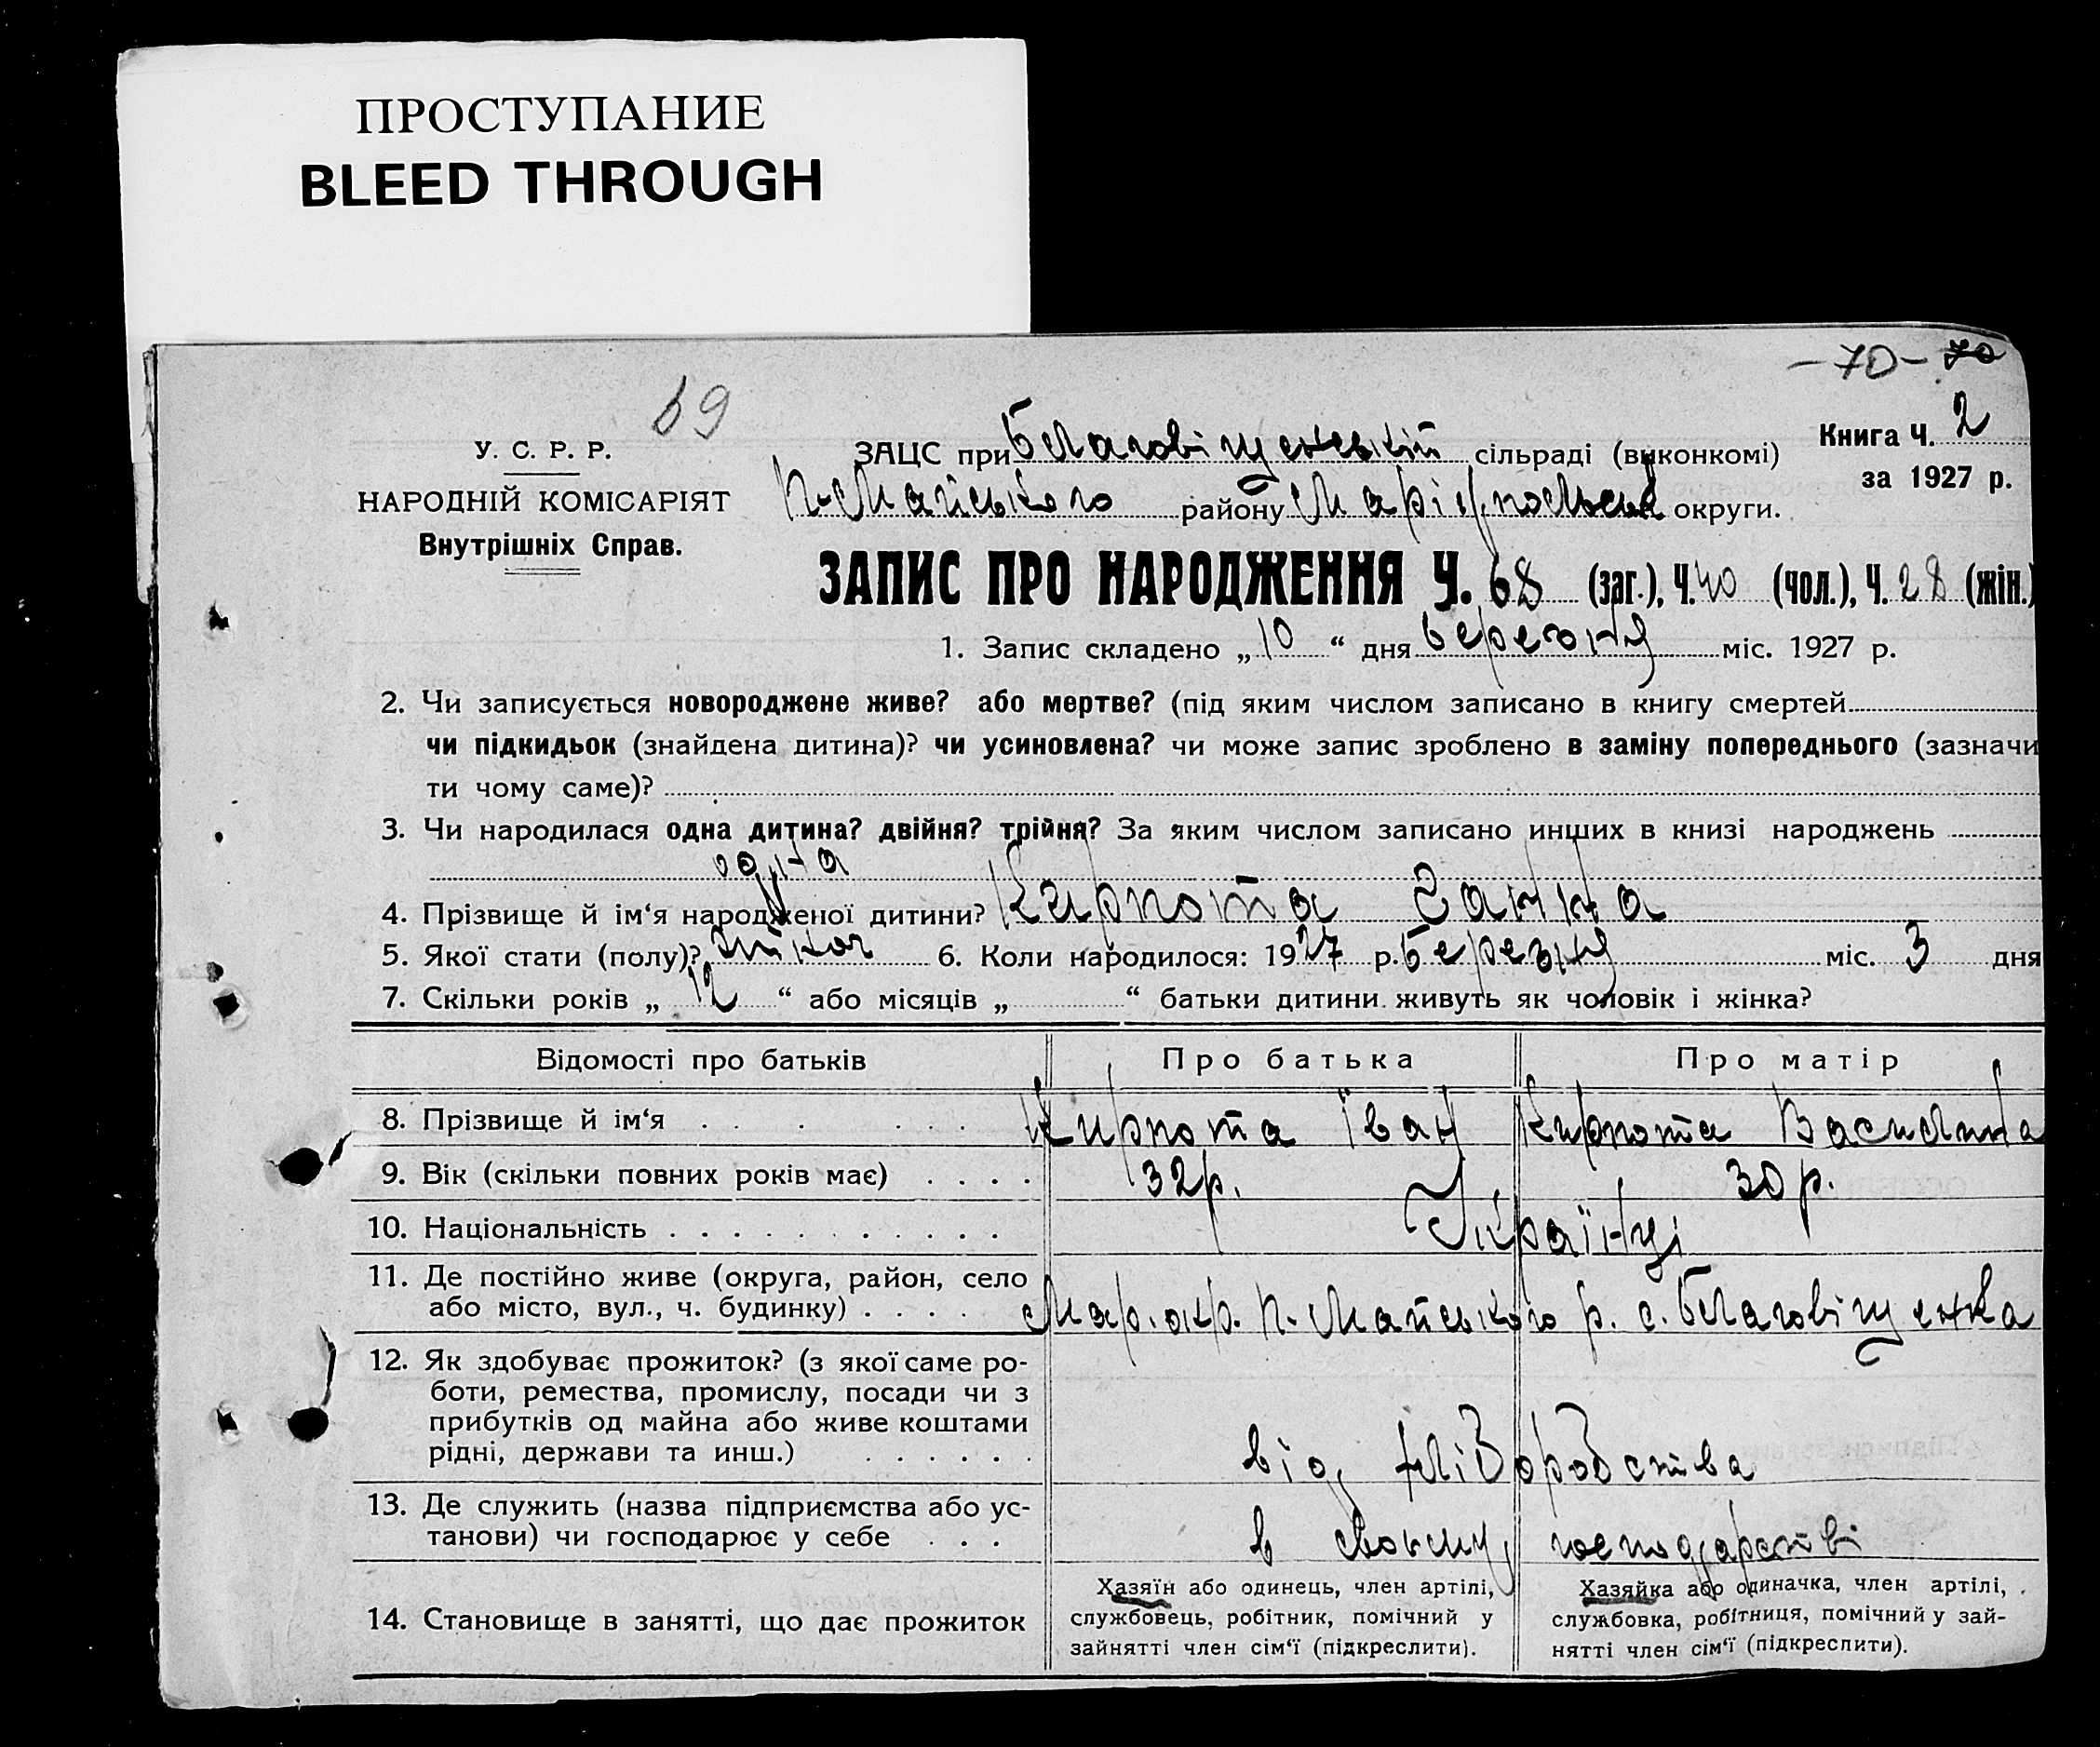 ПРОСТУПАНИЕ
BLEED THROUGH
- 70 - 70
69
Книга Ч. 2
за 1927 р.
У. С. Р. Р.
НАРОДНІЙ КОМІСАРІЯТ
Внутрішніх Справ.
ЗАЦС при Благовіщенській сільраді (виконкомі)
П-Майського району Маріупольськ округи.
ЗАПИС ПРО НАРОДЖЕННЯ Ч. 68 (заг.), Ч. 40 (чол.), Ч. 28 (жін.)
1. Запис складено „ 10 “ дня березня міс. 1927 р.
2. Чи записується новороджене живе? або мертве? (під яким числом записано в книгу смертей
чи підкидьок (знайдена дитина)? чи усиновлена? чи може запис зроблено в заміну попереднього (зазначи
ти чому саме)?
3. Чи народилася одна дитина? двійня? трійня? За яким числом записано инших в книзі народжень
одна
4. Прізвище й ім‘я народженої дитини? Кирпота Ганна
5. Якої стати (полу)? жіноч 6. Коли народилося: 1927 р. березня міс. 3 дня
7. Скільки років „ 12 “ або місяців „ “ батьки дитини живуть як чоловік і жінка?
Відомості про батьків Про батька Про матір
8. Прізвище й ім‘я . . . . . . Кирпота Іван Кирпота Василина
9. Вік (скільки повних років має) . . . . 32р. 30р.
10. Національність . . . . . . . . . . . Українці
11. Де постійно живе (округа, район, село
або місто, вул., ч. будинку) . . . . Мар. окр. П-Майського р. с. Благовіщенка
12. Як здобуває прожиток? (з якої саме ро-
боти, ремества, промислу, посади чи з
прибутків од майна або живе коштами
рідні, держави та инш.) . . . . . . від хліборобства
13. Де служить (назва підприємства або ус-
танови) чи господарює у себе . . . в своєму господарстві
14. Становище в занятті, що дає прожиток
Хазяїн або одинець, член артілі,
службовець, робітник, помічний у
зайнятті член сім‘ї (підкреслити).
Хазяйка або одиначка, член артілі,
службовка, робітниця, помічний у зай-
нятті член сім‘ї (підкреслити).